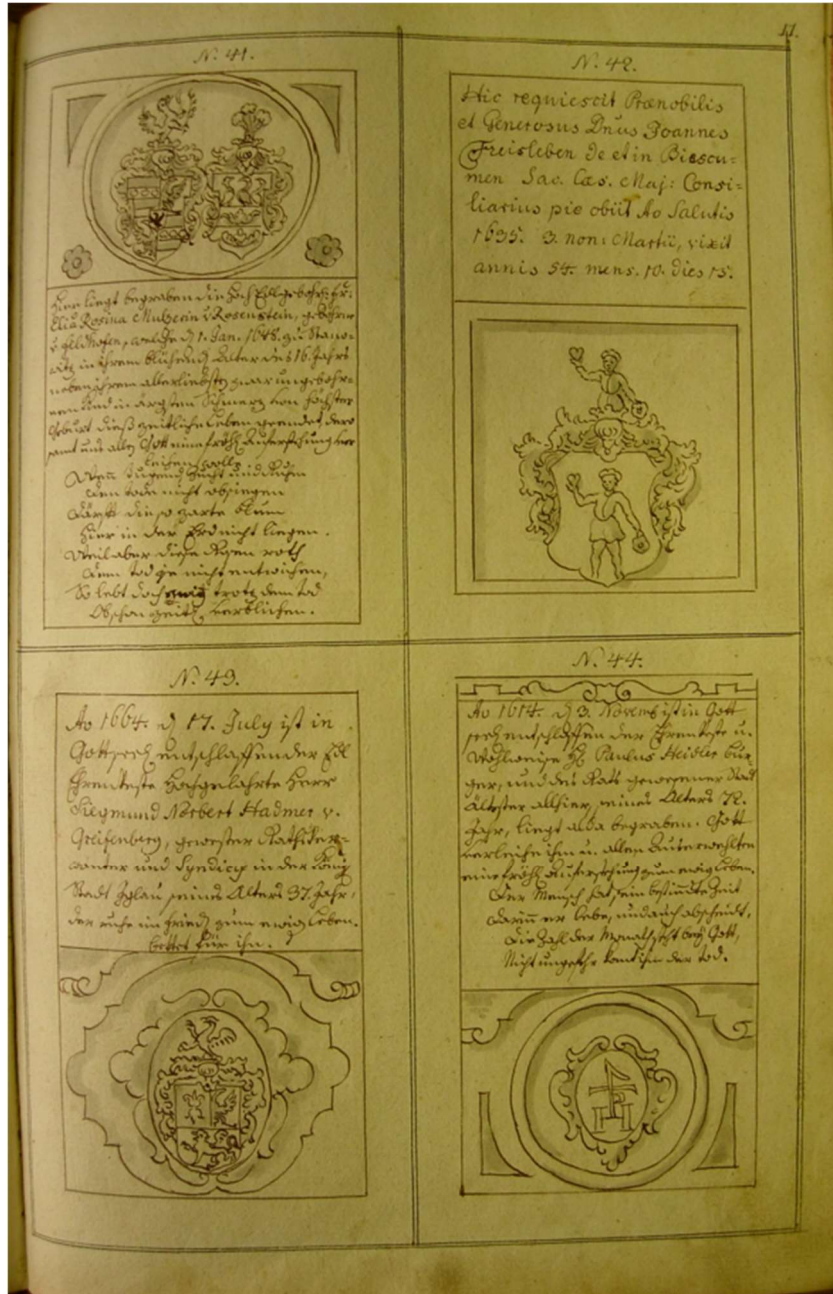 11.
N. 41.
Hier liegt begraben die Hoch Edlgebohrne Fr:
Rosina v Rosenstein, gebohrne
v. Feldhofen, welche d 1. Jan. 1648. zu
in ihrem blühend Alter des 16 Jahrs
neben ihrem allerliebsten zwar ungebohr=
nem Kind in Schmertz
Geburt dieses zeitliche Leben geendet, dero
samt uns allen Gott eine fröhl. Auferstehung
Wenn Tugend Zucht und
dem tod nicht obsiegen
diese zarte Blum
hier in der Erd nicht liegen.
Weil aber diese roth
dem tod nicht entwichen,
So lebt doch ewig trotz dem tod
Obschon zeitl. verblichen.
N. 42.
Hic requiescit Prænobilis
et Generosus Dnus Joannes
Freisleben de et in Biescu=
men Sac. Cæs. Maj: Consi=
liarius pie obiit Ao Salutis
1635. 3. non: Martii, vixit
annis 54. mens. 10. dies 15.
N. 43.
Ao 1664. d 17. July ist in
Gott seel. entschlaffen der Edl
Ehrenveste Hochgelahrte Herr
Siegmund Norbert Hadmer v.
Greifenberg, gewester Raths
und Syndicus in der König
Stadt Iglau seines Alters 37. Jahr,
der ruhe im Fried zum ewig Leben.
bettet für ihn.
N. 44.
Ao 1614. d 3. Novemb ist in Gott
seel. entschlaffen der Ehrenveste u.
Wohlweise H. Paulus Heidler bur
ger, und des Rats gewesener Stadt
Ältester allhier, seines Alters 72.
Jahr, liegt alda begraben. Gott
verleihe ihm u. allen Auserwehlten
eine fröhl. Auferstehung zum ewig Leben.
Der Mensch hat sein bestimdte Zeit
darinn er lebe, und auch abscheidt,
die Zahl der Monath steht bey Gott,
Nicht ungefehr komt ihm der tod.